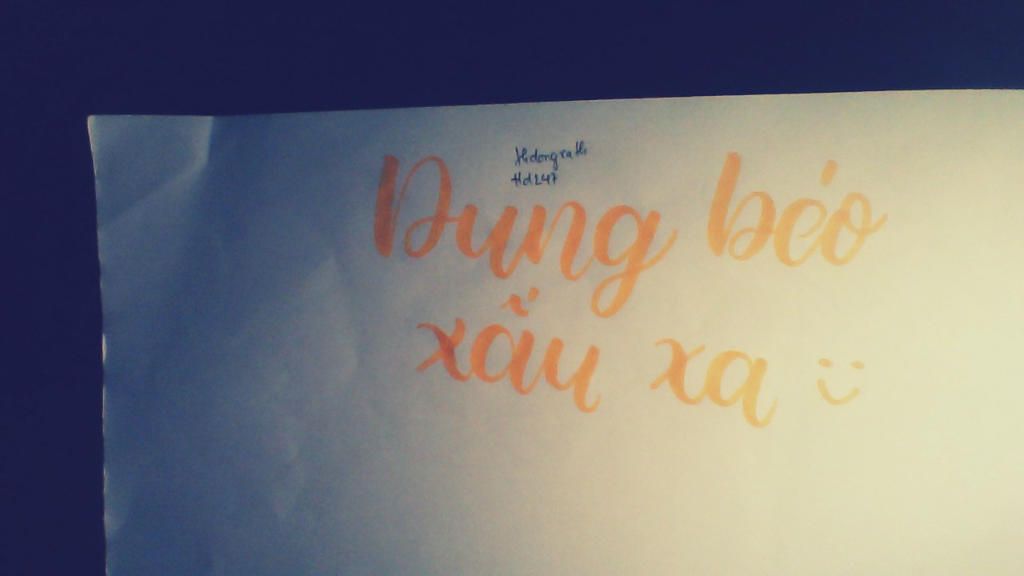 Hdongrath
Hd247
Dung béo
xấu xa :)